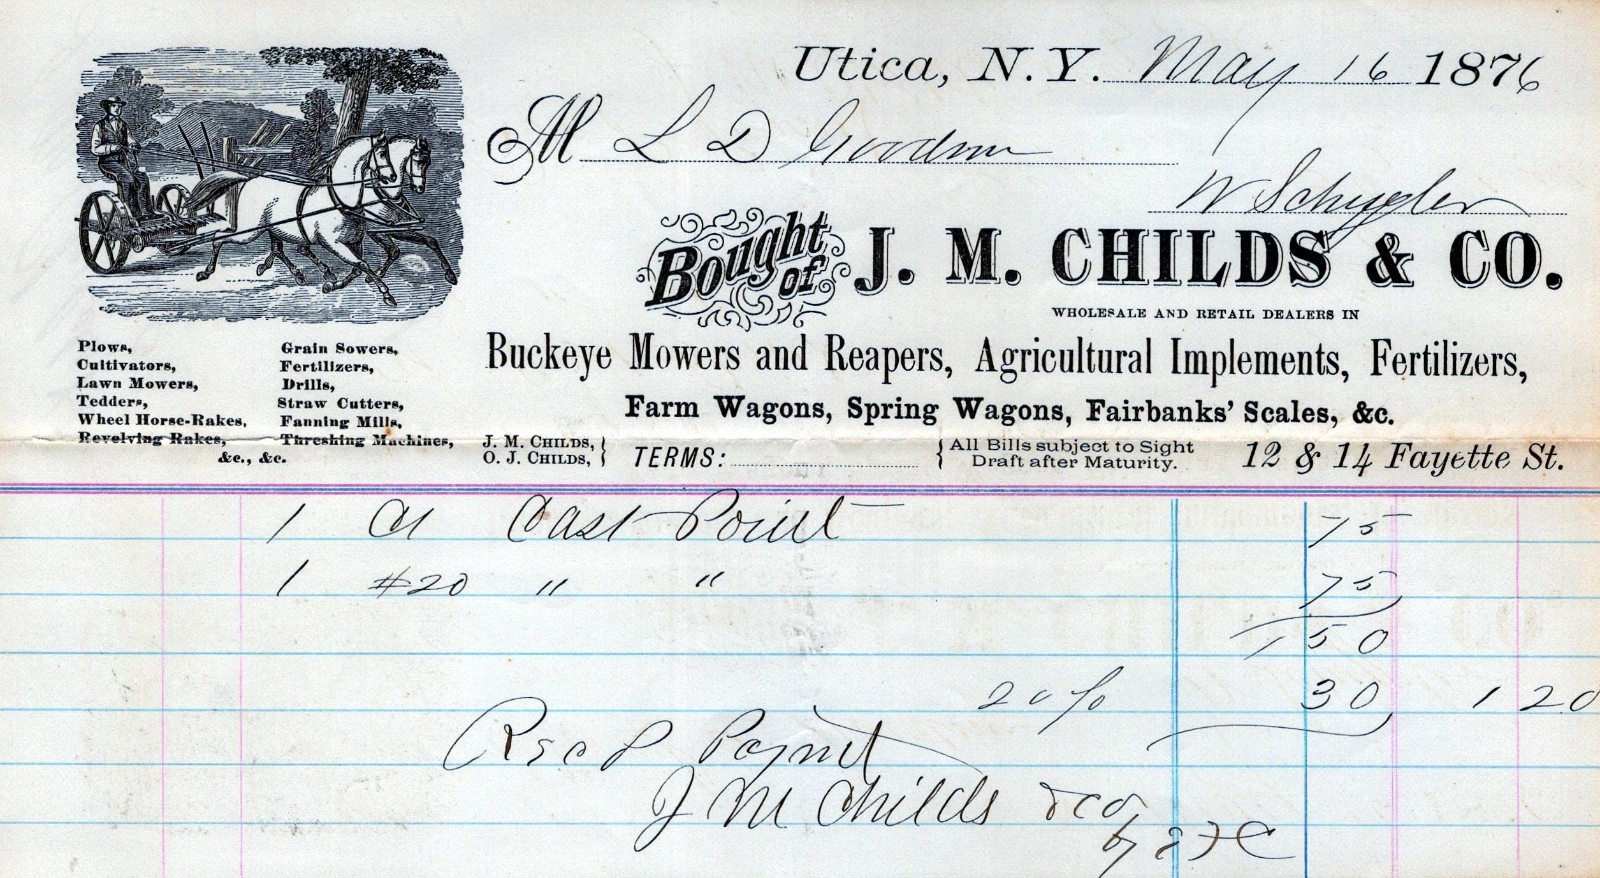 Utica, N.Y. May 16 1876
M L D Goodman
W Schuyler
Bought of J. M. CHILDS & CO.
WHOLESALE AND RETAIL DEALERS IN
Buckeye Mowers and Reapers, Agricultural Implements, Fertilizers,
Farm Wagons, Spring Wagons, Fairbanks' Scales, &c.
Plows,
Cultivators,
Lawn Mowers,
Tedders,
Wheel Horse-Rakes,
Revolving Rakes,
Grain Sowers,
Fertilizers,
Drills,
Straw Cutters,
Fanning Mills,
Threshing Machines,
&c., &c.
J. M. CHILDS,
O. J. CHILDS,
TERMS:
All Bills subject to Sight
Draft after Maturity.
12 & 14 Fayette St.
1 Cast Point 75
1 #20 " " 75
150
20% 30 120
Recd Paymt
J M Childs & Co
by